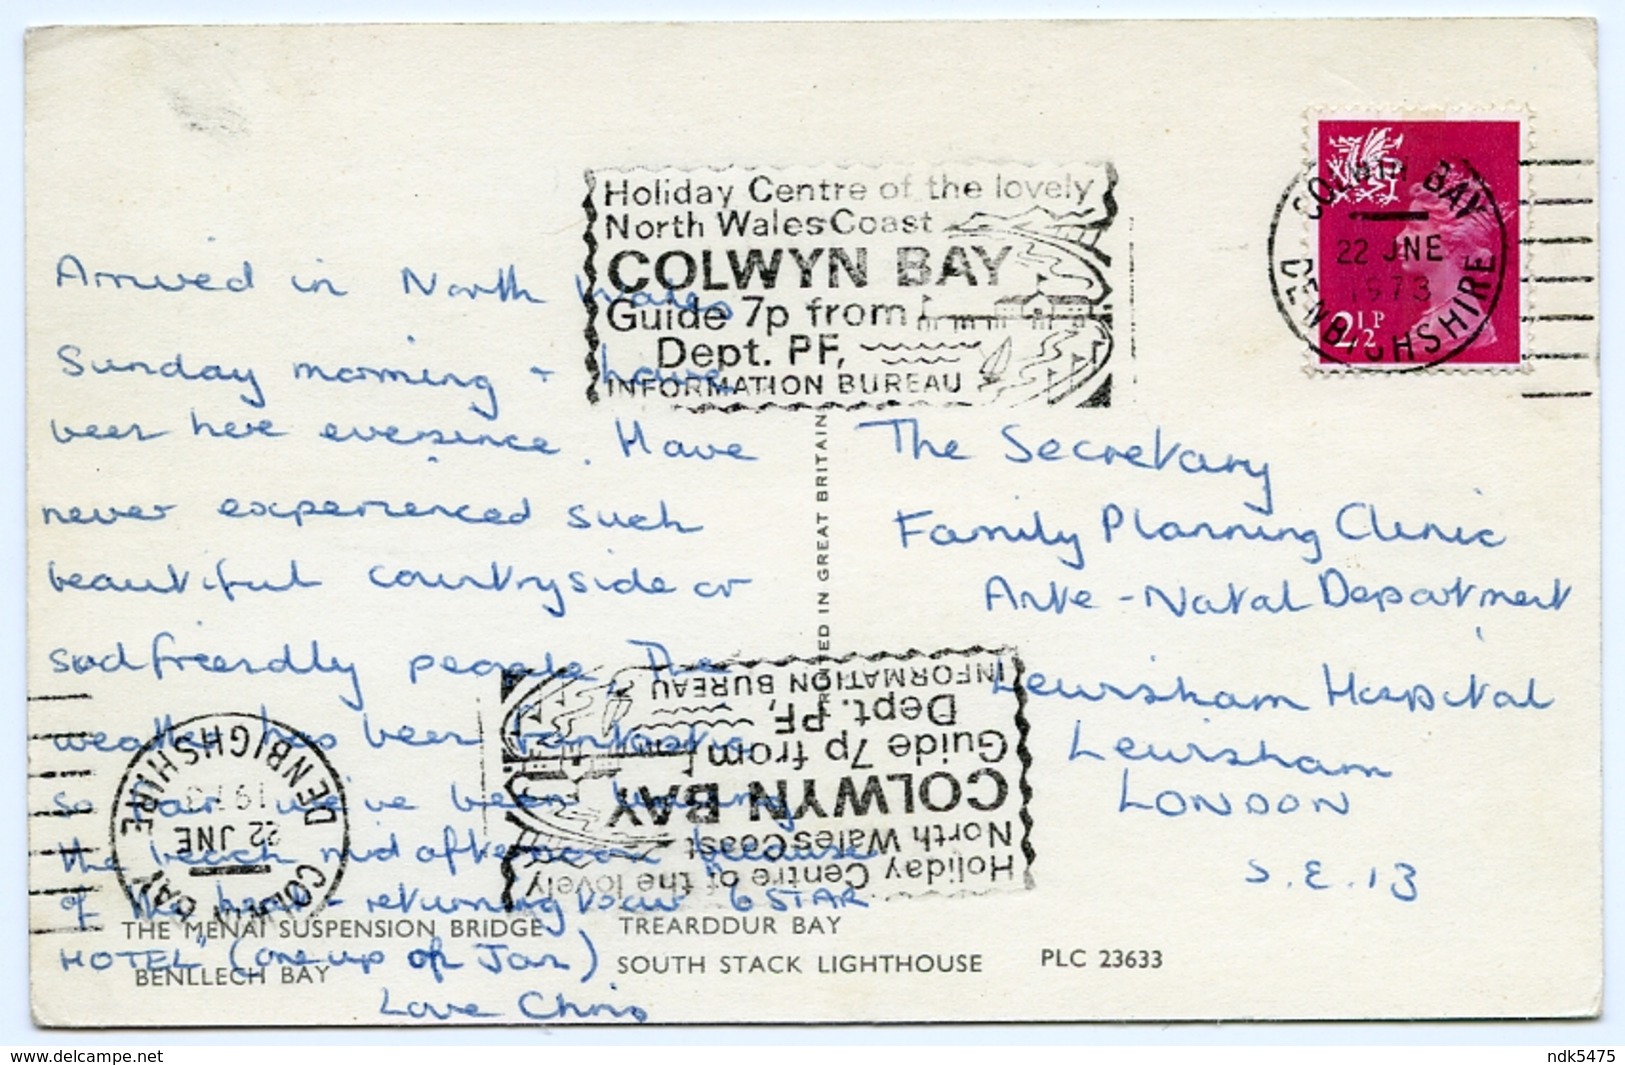 Holiday Centre of the lovely
North Wales Coast
COLWYN BAY
Guide 7p from
Dept. PF,
INFORMATION BUREAU
COLWYN BAY
22 JNE
1973
DENBIGHSHIRE
2½P
Arrived in North Wales
Sunday morning + have
been here eversince. Have
never experienced such
beautiful countryside or
such friendly people. The
weather has been fantastic
so far we've been leaving
the beach mid afternoon because
of the heat - returning to our "6 STAR
HOTEL" (one up on Jan)
Love Chris
PRINTED IN GREAT BRITAIN
The Secretary
Family Planning Clinic
Ante-Natal Department
Lewisham Hospital
Lewisham
LONDON
S.E.13
INFORMATION BUREAU
Dept. PF,
Guide 7p from
COLWYN BAY
North Wales Coast
Holiday Centre of the lovely
COLWYN BAY
22 JNE
1973
DENBIGHSHIRE
THE MENAI SUSPENSION BRIDGE TREARDDUR BAY
BENLLECH BAY SOUTH STACK LIGHTHOUSE PLC 23633
www.delcampe.net ndk5475